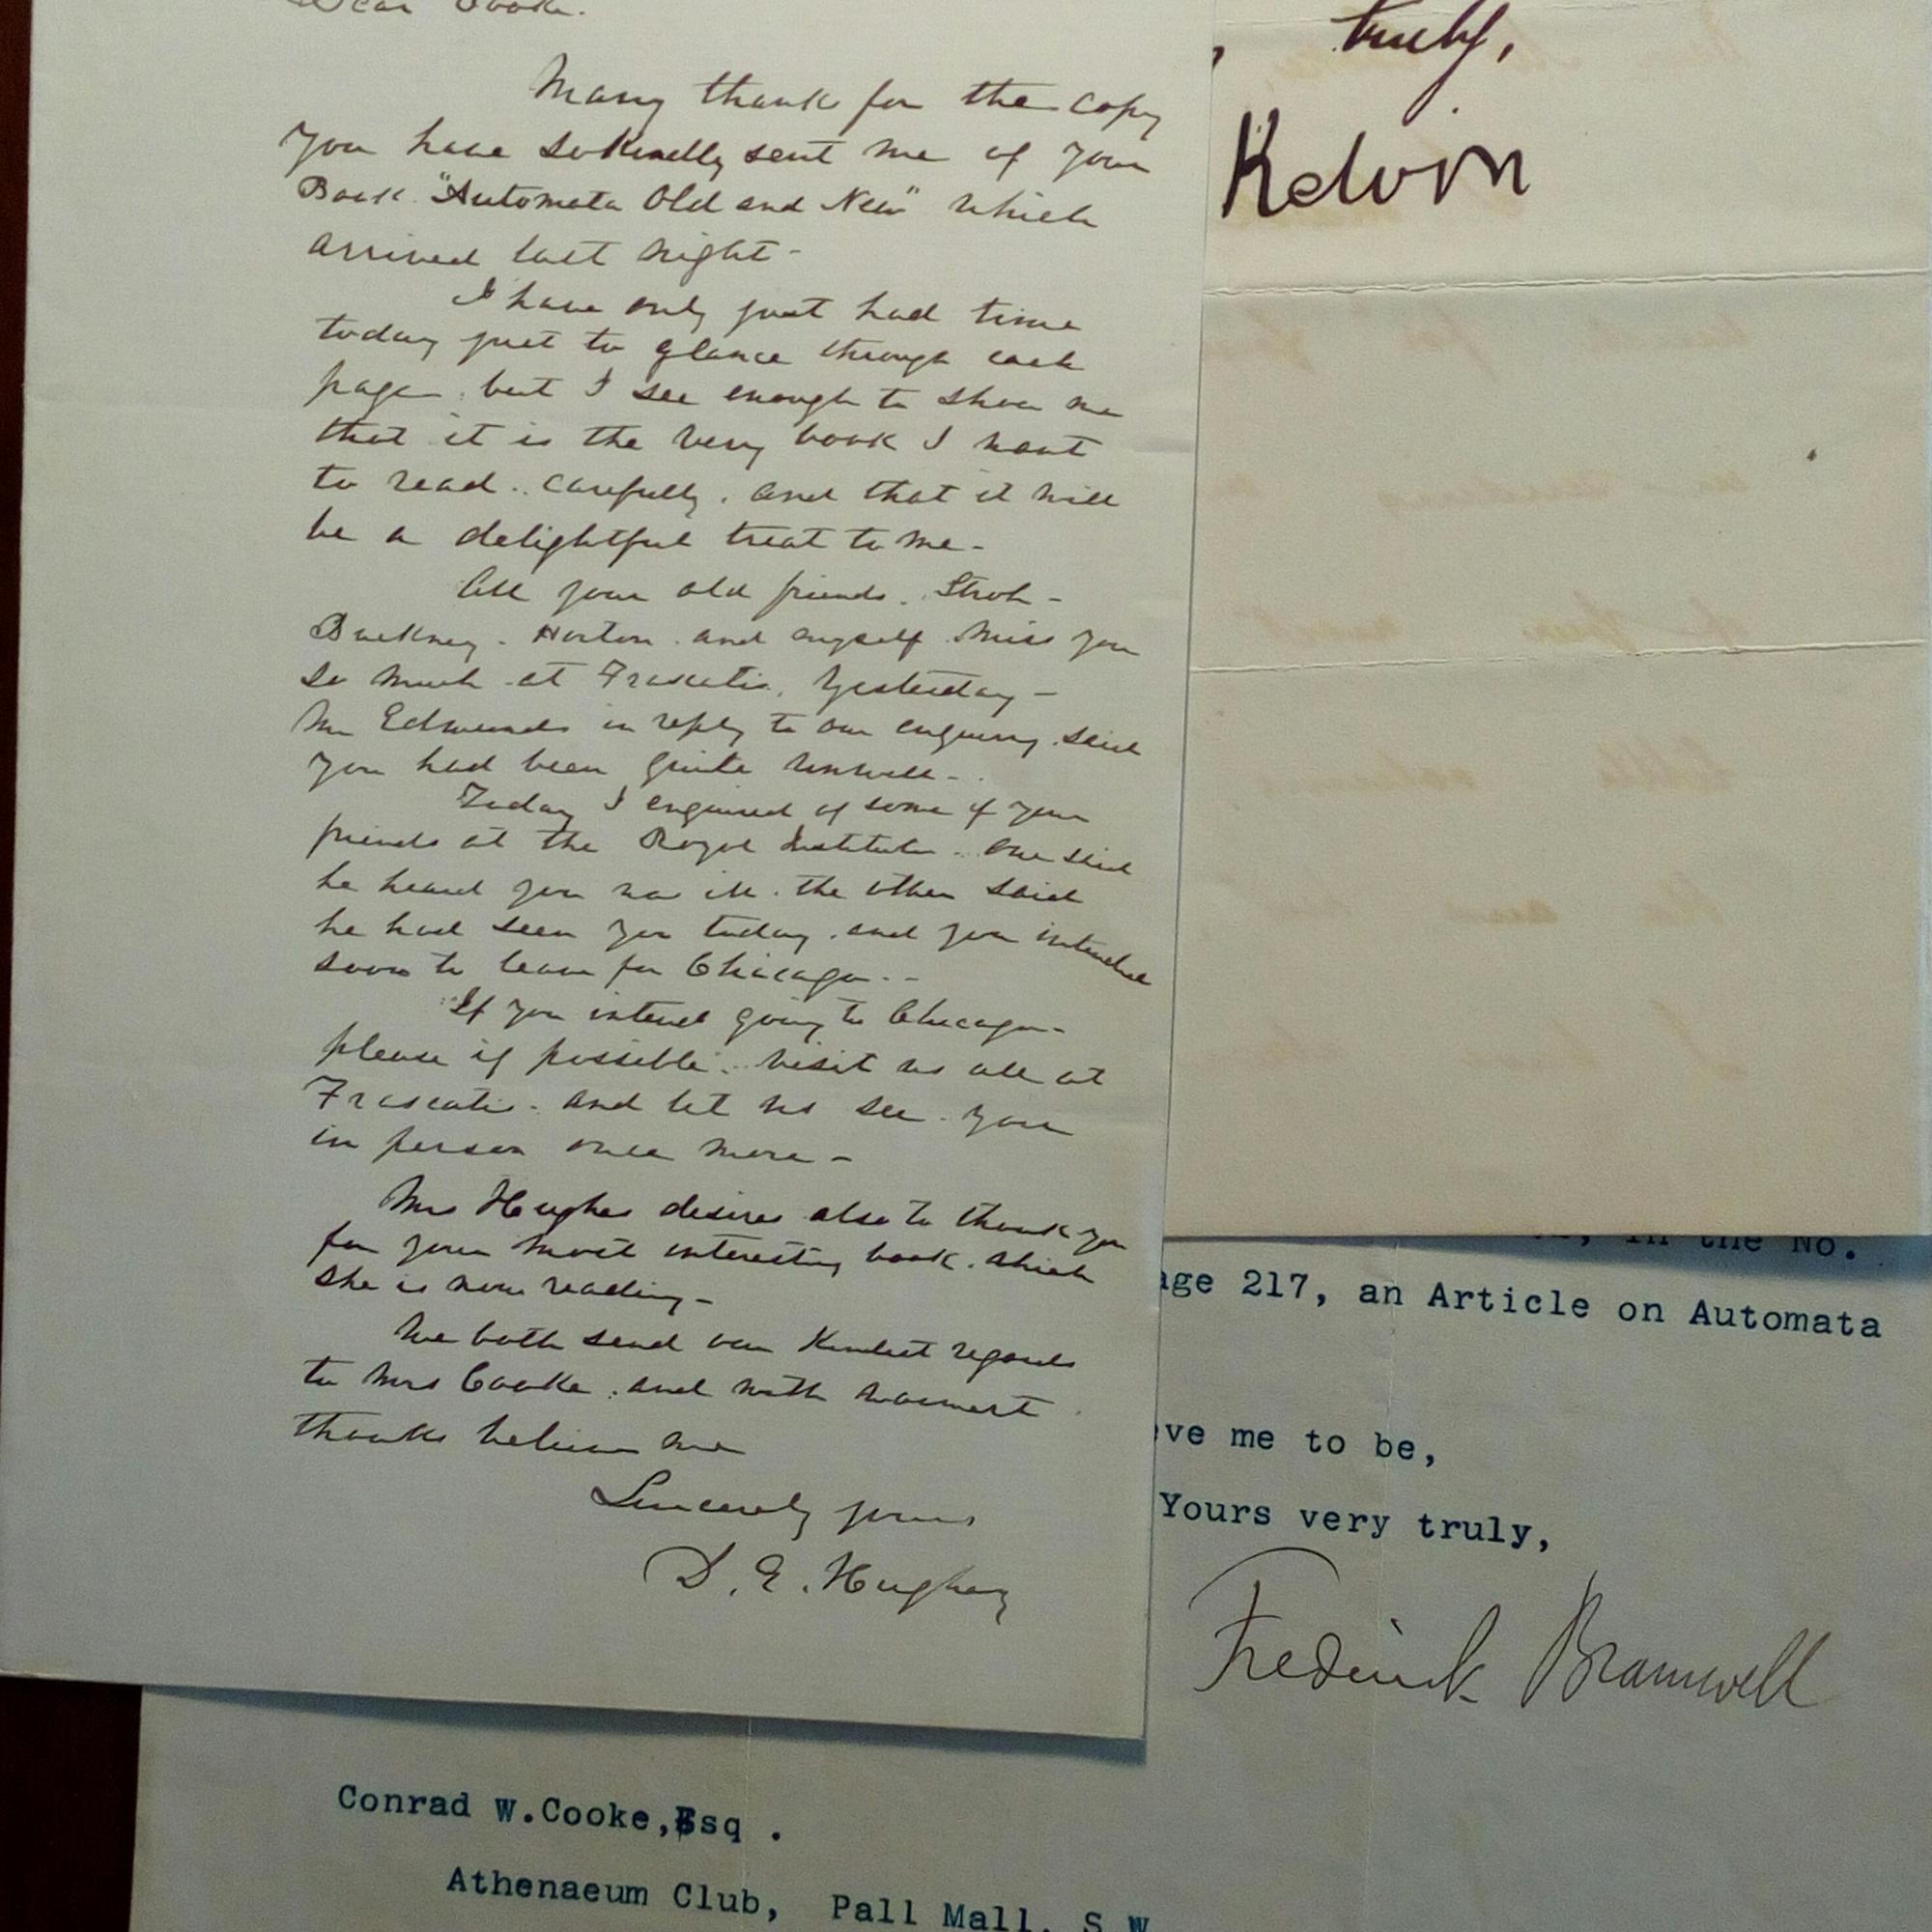 Dear Cooke.
Many thanks for the copy
you have so Kindly sent me of your
Book "Automata Old and New" which
arrived last night -
I have only just had time
today just to glance through each
page. but I see enough to show me
that it is the very book I want
to read.. carefully. and that it will
be a delightful treat to me -
All your old friends. Stroh -
Buckney - Horton. and myself. Miss you
so much at Frascatis. Yesterday -
Mr Edmunds in reply to our enquiry. said
you had been quite unwell -.
Today I enquired of some of your
friends at the Royal Institute.. One said
he heard you was ill. the other said
he had seen you today. and you intended
soon to leave for Chicago..
If you intend going to Chicago -
please if possible.. visit us all at
Frascatis. and let us see. you
in person once more -
Mrs Hughes desires also to thank you
for your most interesting book. which
she is now reading -
We both send our Kindest regards
to Mrs Cooke. and with warmest
thanks believe me
Sincerely yours
D. E. Hughes
truly,
Kelvin
in the No.
age 217, an Article on Automata
ve me to be,
Yours very truly,
Frederick Bramwell
Conrad W.Cooke,Esq .
Athenaeum Club, Pall Mall. S W